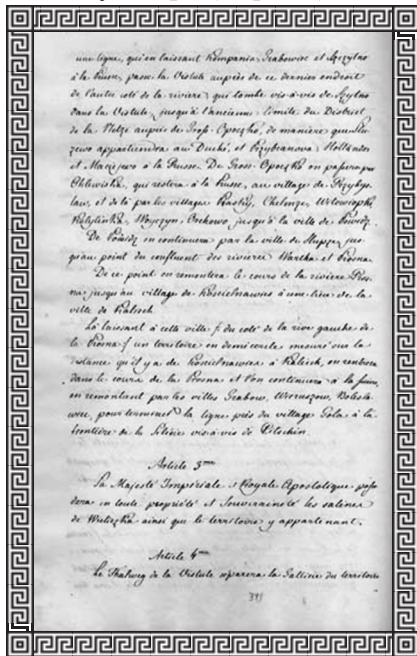 une ligne, qui en laissant Kompania, Grabowiec et Szczytno
à la Prusse, passe la Vistule auprès de ce dernier endroit
de l'autre coté de la rivière, qui tombe vis-à-vis de Szytno
dans la Vistule, jusqu'à l'ancienne limite du District
de la Netze auprès de Gross-Opoczko, de manière que Slu-
zewo appartiendra au Duché, et Przybranowa, Hollænder
et Maciejewo à la Prusse. De Gross-Opoczko on passera par
Chlewiska, qui restera à la Prusse, au village de Przybys-
law, et de là par les villages Piasky, Chelmce, Witowiczki
Kobylinka, Woyczyn, Orchowo jusqu'à la ville de Powidz.
De Powidz on continuera par la ville de Slupce jus-
qu'au point du confluent des rivières Wartha et Prosna.
De ce point on remontera le cours de la rivière Pros-
na jusqu'au village de Koscielnawies à une lieue de la
ville de Kalisch.
Là laissant à cette ville (du coté de la rive gauche de
la Prosna) un territoire en demi cercle mesuré sur la
distance qu'il y a de Koscielnawies à Kalisch, on rentrera
dans le cours de la Prosna et l'on continuera à la suivre
en remontant par les villes Grabow, Wieruszow, Boleslа-
wiec, pour terminer la ligne près du village Gola à la
frontière de la Silésie vis-à-vis de Pitschin.
Article 3me
Sa Majesté Impériale et Royale Apostolique possé-
dera en toute propriété et Souveraineté les salines
de Wieliczka ainsi que le territoire y appartenant.
Article 4me
Le Thalweg de la Vistule séparera la Gallicie du territoire